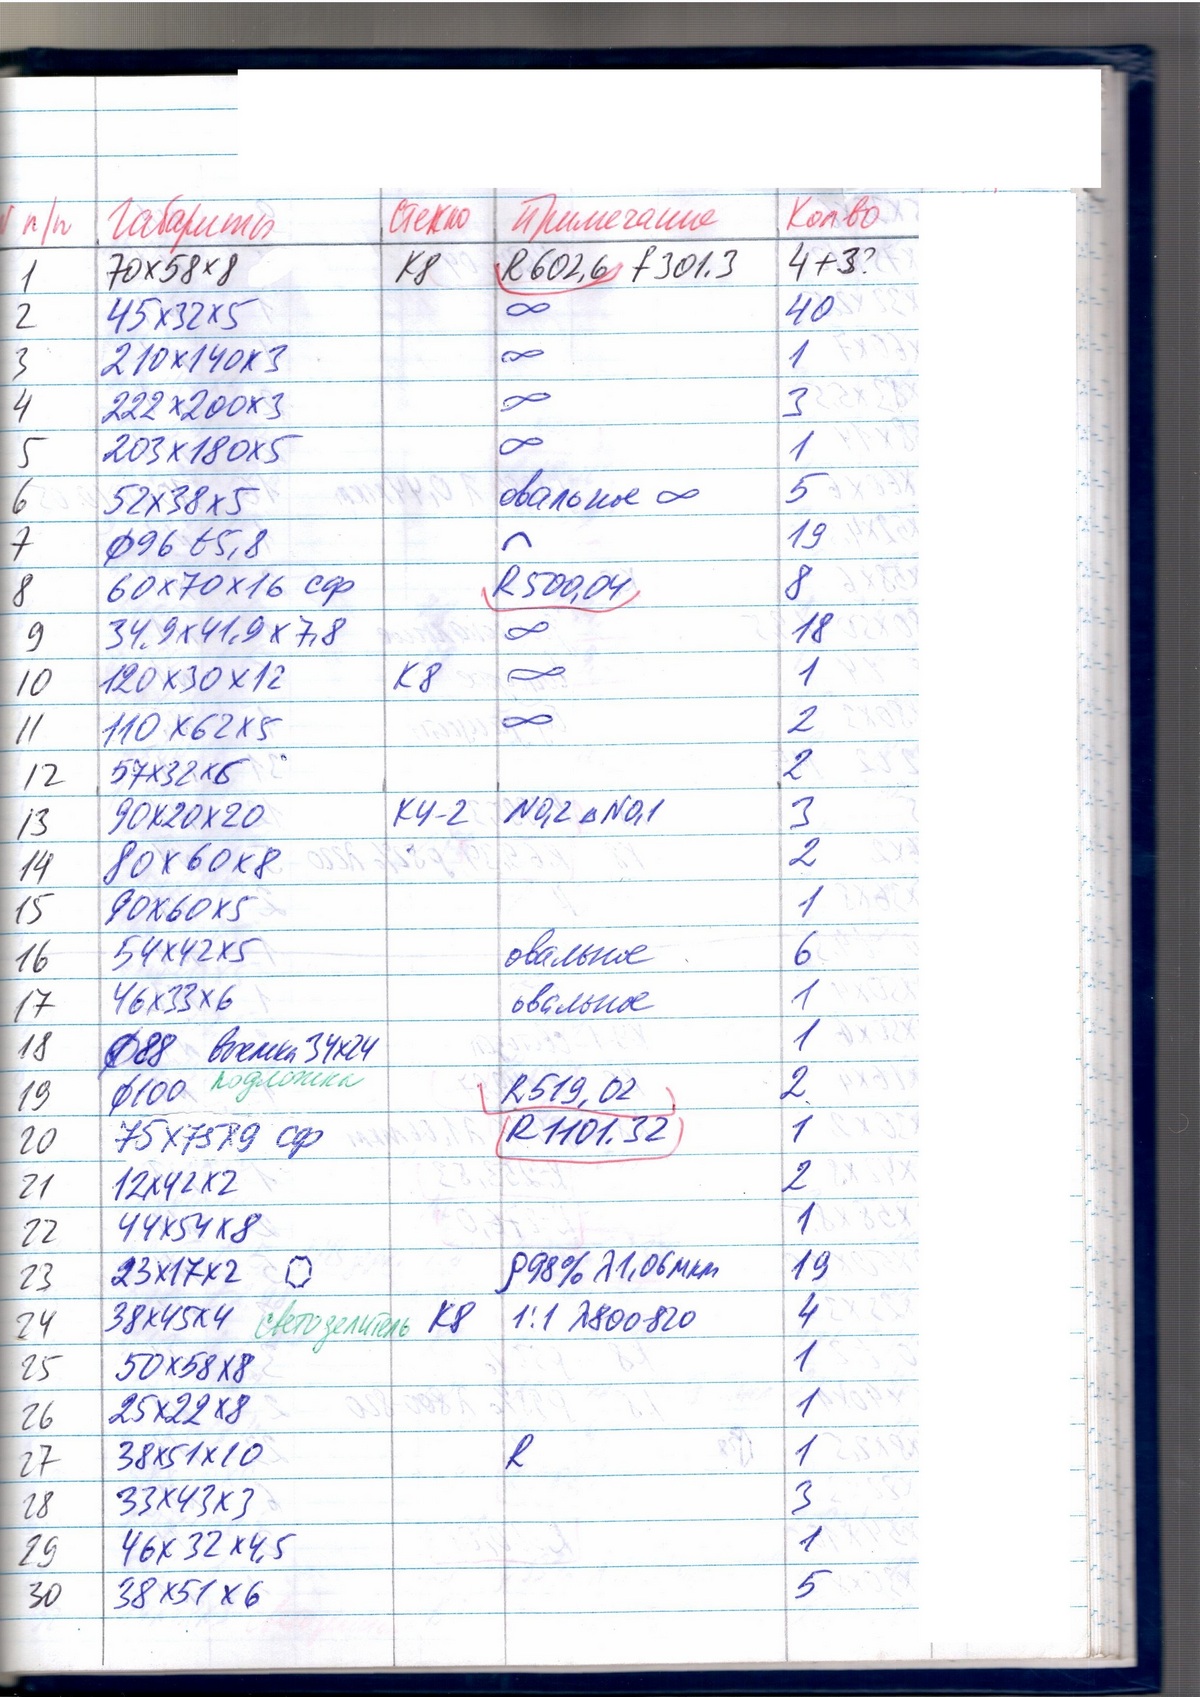 N п/п Габариты Стекло Примечание Кол-во
1 70x58x8 К8 R602,6 f301.3 4+3?
2 45x32x5 ∞ 40
3 210x140x3 ∞ 1
4 222x200x3 ∞ 3
5 203x180x5 ∞ 1
6 52x38x5 овальное ∞ 5
7 ϕ96 t5,8 ⌒ 19
8 60x70x16 сф R500,04 8
9 34,9x41,9x7,8 ∞ 18
10 120x30x12 К8 ∞ 1
11 110x62x5 ∞ 2
12 57x32x6 2
13 90x20x20 К4-2 N0,2 ΔN0,1 3
14 80x60x8 2
15 90x60x5 1
16 54x42x5 овальное 6
17 46x33x6 овальное 1
18 ϕ88 выемка 34x24 1
19 ϕ100 подложка R519,02 2
20 75x75x9 сф R1101.32 1
21 12x42x2 2
22 44x54x8 1
23 23x17x2 ρ98% λ1,06мкм 19
24 38x45x4 светоделитель К8 1:1 λ800-820 4
25 50x58x8 1
26 25x22x8 1
27 38x51x10 R 1
28 33x43x3 3
29 46x32x4,5 1
30 38x51x6 5